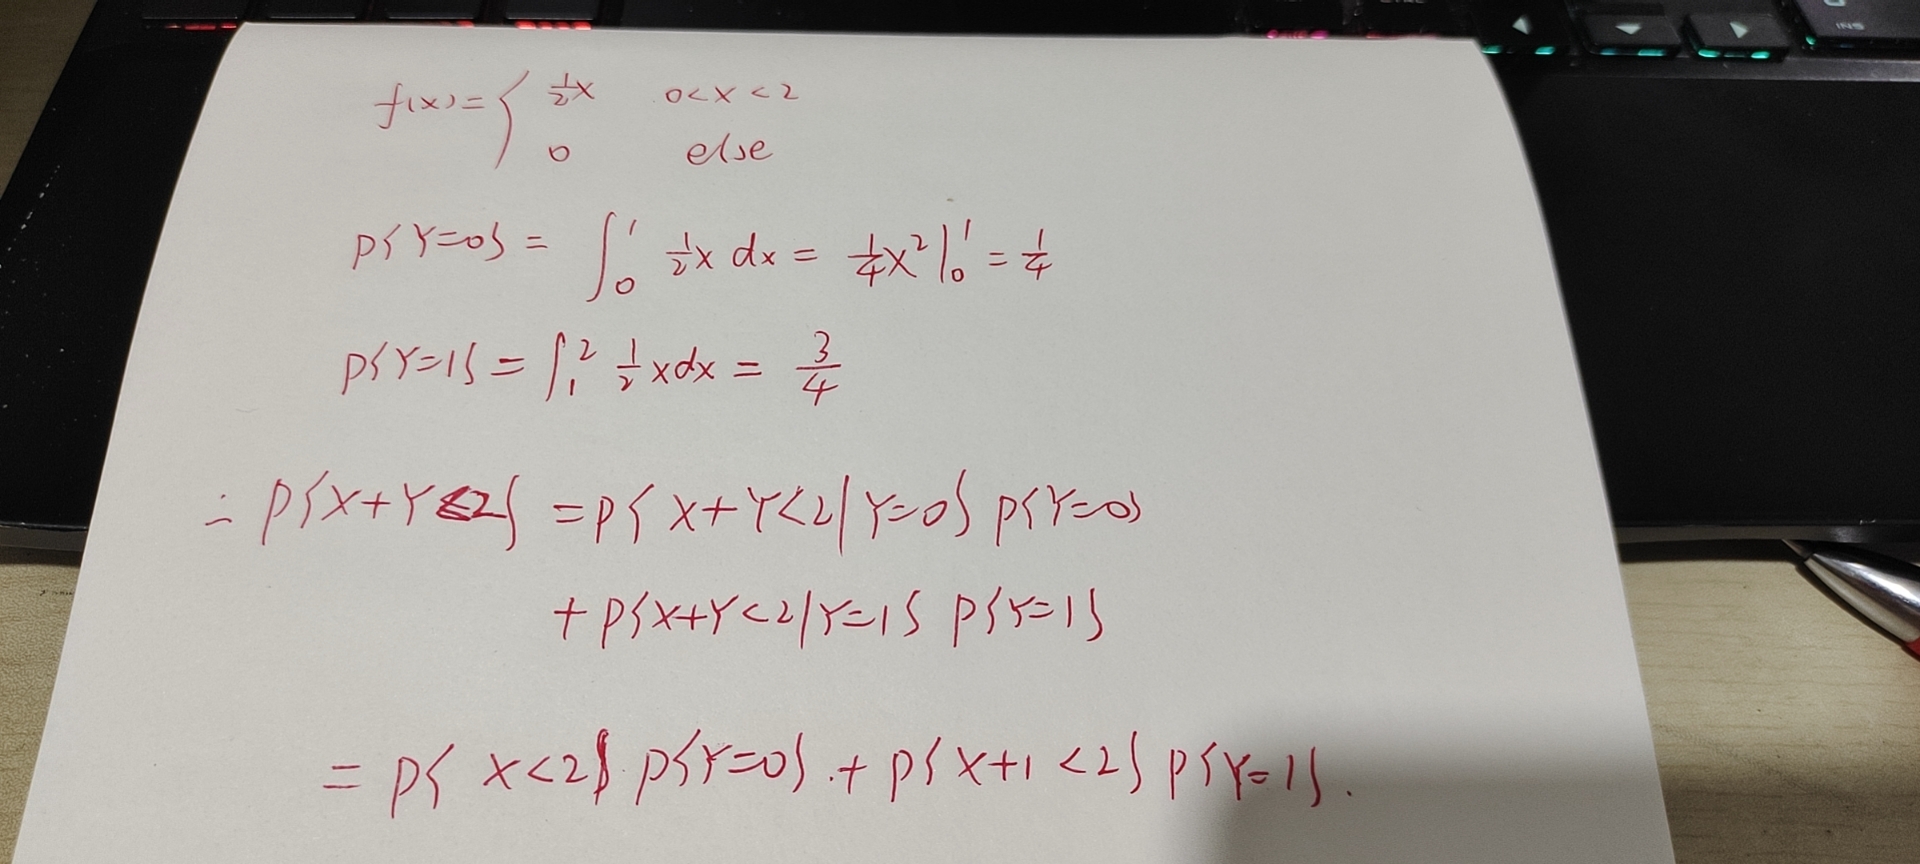 f(x) = { 1/2 x 0<x<2
0 else
P{Y=0} = ∫₀¹ 1/2 x dx = 1/4 x² |₀¹ = 1/4
P{Y=1} = ∫₁² 1/2 x dx = 3/4
∴ P{X+Y<2} = P{X+Y<2|Y=0} P{Y=0}
+ P{X+Y<2|Y=1} P{Y=1}
= P{X<2} P{Y=0} + P{X+1<2} P{Y=1}.
INS